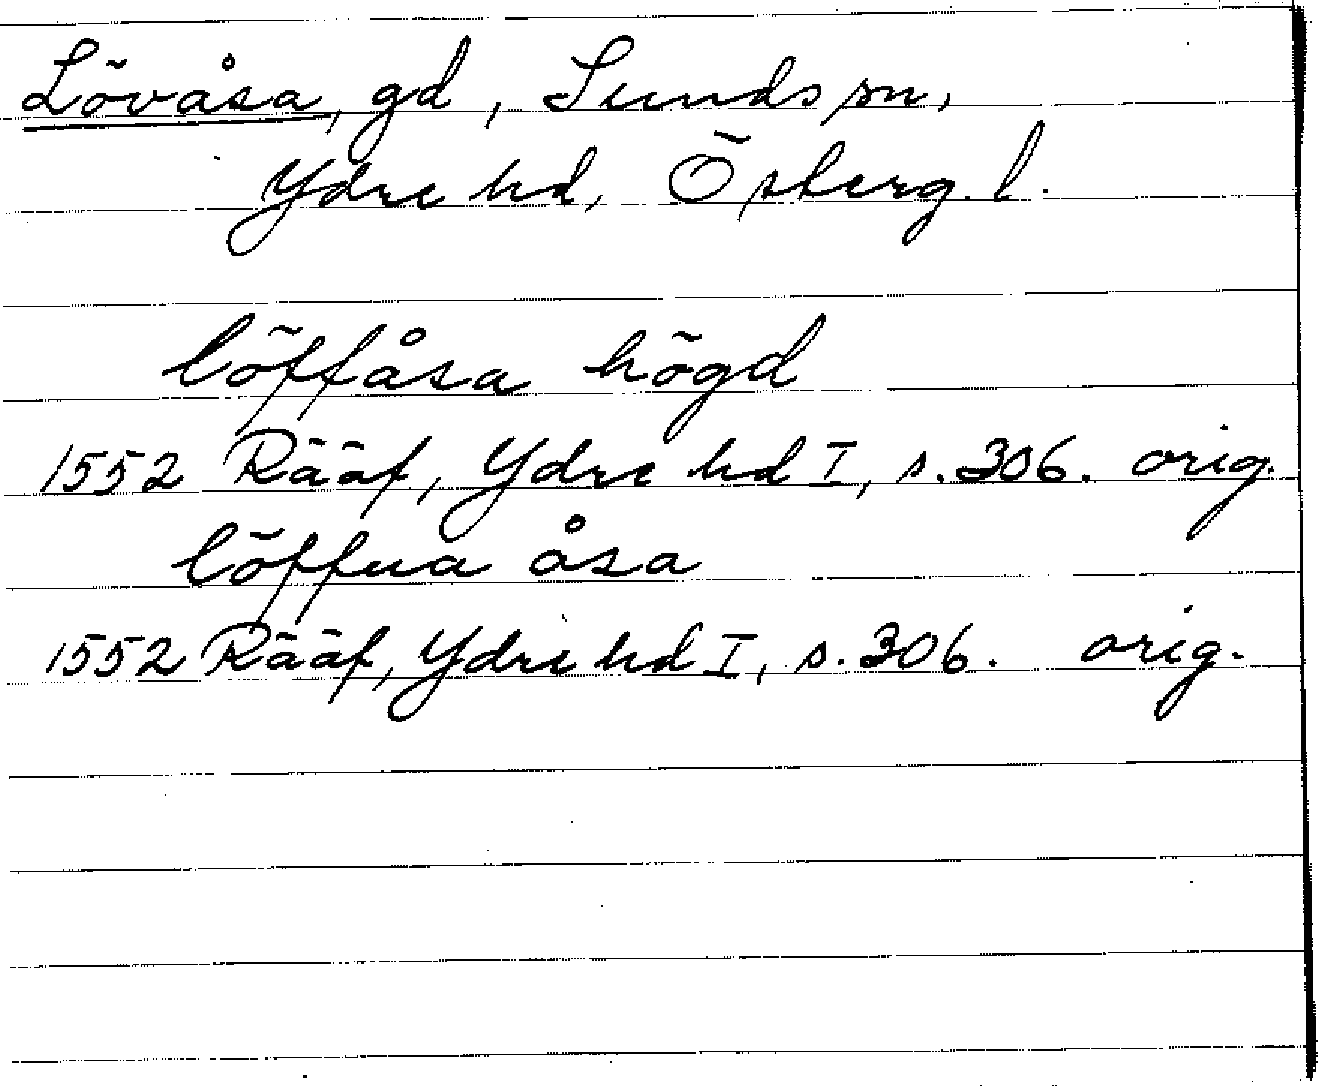 Lövåsa, gd, Sunds sn,
Ydre hd, Österg. l.
löffåsa högd
1552 Rääf, Ydre hd I, s. 306. orig.
löffua åsa
1552 Rääf, Ydre hd I, s. 306. orig.